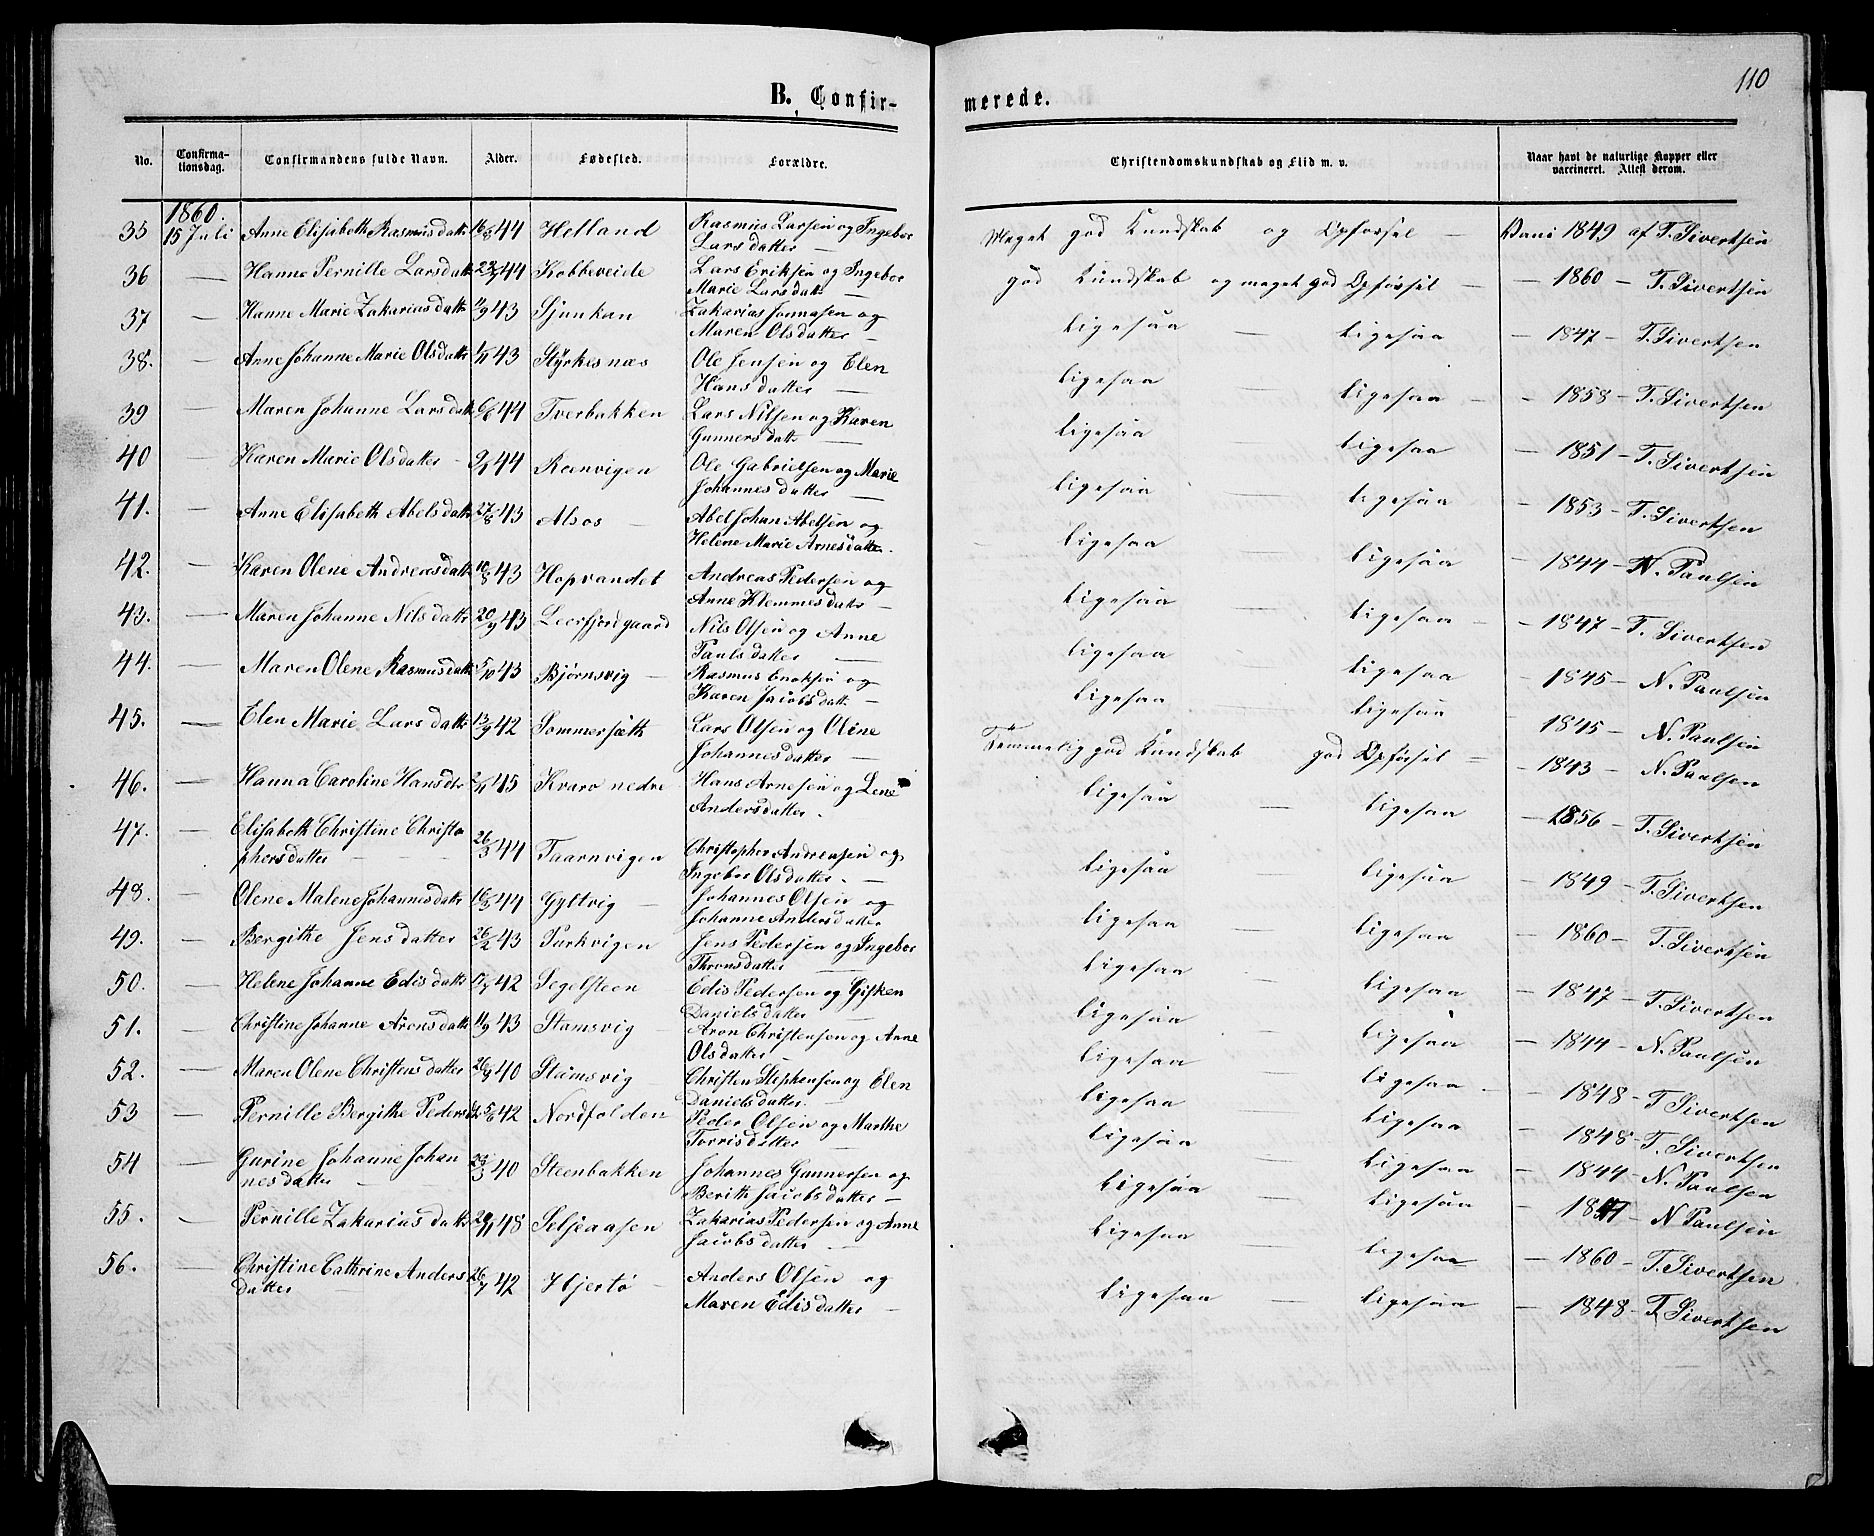 110
B. Confir- merede.
No. Confirma-tionsdag. Confirmandens fulde Navn. Alder. Fødested. Forældre. Christendomskundskab og Flid m. v. Naar havt de naturlige Kopper eller vaccineret. Attest derom.
1860.
35 15 Juli Anne Elisabeth Rasmusdatt 44 Helland Rasmus Larsen og Ingebor Larsdatter — Meget god Kundskab og Opførsel — Vacci 1849 af T. Sivertsen
36 — Hanne Pernille Larsdatt 44 Kobbeveide Lars Eriksen og Ingebor Marie Larsdatt — god Kundskab og meget god Opførsel — — 1860 — T. Sivertsen
37 — Hanne Marie Zakariasdatt 11/9 43 Sjunkan Zakarias Jonnasen og Maren Olsdatter — ligesaa — ligesaa — 1847 — T. Sivertsen
38. — Anne Johanne Marie Olsdatt 43 Styrkesnæs Ole Jensen og Elen Hansdatter — ligesaa — ligesaa — — 1858 — T. Sivertsen
39 — Maren Johanne Larsdatt 44 Tverbakken Lars Nilsen og Karen Gunnersdatt — ligesaa — ligesaa — 1851 — T. Sivertsen
40 — Karen Marie Olsdatter — 44 Roenvigen Ole Gabrielsen og Marie Johannesdatter — ligesaa — ligesaa — 1853 — T. Sivertsen
41. — Anne Elisabeth Abelsdatt 27/8 43 Alsos — Abel Johan Abelsen og Helene Marie Arnesdatter. ligesaa — ligesaa — 1844 — N. Paulsen
42. — Karen Olene Andreasdatt 10/8 43 Hopvandet Andreas Pedersen og Anne Klemmesdatt — ligesaa — ligesaa — — 1847 — T. Sivertsen
43. — Maren Johanne Nilsdatt 20/9 43 Leerfjordgaard Nils Olsen og Anne Paulsdatter — ligesaa — ligesaa — 1845 — N. Paulsen
44. — Maren Olene Rasmusdatt 5/10 43 Bjørnsvig — Rasmus Enoksen og Karen Jacobsdatt — ligesaa — ligesaa — 1845 — N. Paulsen
45. — Elen Marie Larsdatt 13/9 42 Sommersæth Lars Olsen og Oline Johannesdatter — Temmelig god Kundskab god Opførsel — — 1843 — N. Paulsen
46. — Hanna Caroline Hansdtr 2/11 45 Kvarv nedre Hans Arnesen og Lene Andersdatter. ligesaa — ligesaa — 1856 — T. Sivertsen
47. — Elisabeth Christine Christo phersdatter — — — 26/3 44 Taarnvigen Christopher Andreasen og Ingebor Olsdatter. — ligesaa — ligesaa — 1849 — T. Sivertsen
48. — Olene Malene Johannesdatt 16/3 44 Gyltvig — Johannes Olsen og Johanne Andersdatter ligesaa — ligesaa — 1860 — T. Sivertsen
49. — Bergithe Jensdatter 26/2 43 Purkvigen Jens Pedersen og Ingebor Thronsdatter — ligesaa — ligesaa — 1847 — T. Sivertsen
50. — Helene Johanne Edisdatt 42 Segelsteen Edis Pedersen og Gisken Danielsdatter — ligesaa — ligesaa — 1844 — N. Paulsen
51. — Christine Johanne Aronsdatt 11/9 43 Stamsvig — Aron Christensen og Anne Olsdatter — ligesaa — ligesaa — — 1848 — T. Sivertsen
52. — Maren Olene Christensdatter 26/9 40 Stamsvig — Christen Stephensen og Elen Danielsdatter. — ligesaa — ligesaa — 1848 — T. Sivertsen
53 — Pernille Bergithe Pedersd 42 Nordfolden Peder Olsen og Marthe Torrisdatter — ligesaa — ligesaa — 1844 — N. Paulsen
54 — Gurine Johanne Johan nesdatter — 23/3 40 Steenbakken Johannes Gunnersen og Berith Jacobsdatter — ligesaa — ligesaa — N. Paulsen
55. — Pernille Zakariasdatt 48 Seljeaasen Zakarias Pedersen og Anne Jacobsdatter — ligesaa — ligesaa — 1860 — T. Sivertsen
56. — Christine Cathrine Anders datter — 26/7 42 Hjertø — Anders Olsen og Maren Edisdatter — ligesaa — ligesaa — 1848 — T. Sivertsen